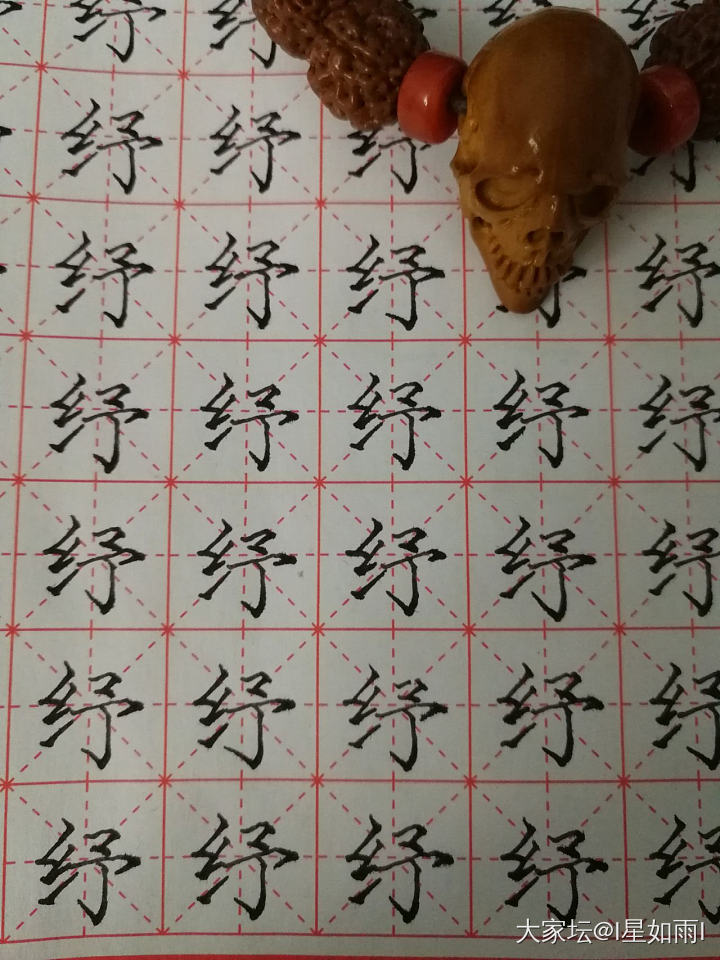 纾 纾
纾 纾 纾
纾 纾 纾 纾
纾 纾 纾 纾 纾
纾 纾 纾 纾 纾
纾 纾 纾 纾 纾
纾 纾 纾 纾 纾
大家坛@I星如雨I